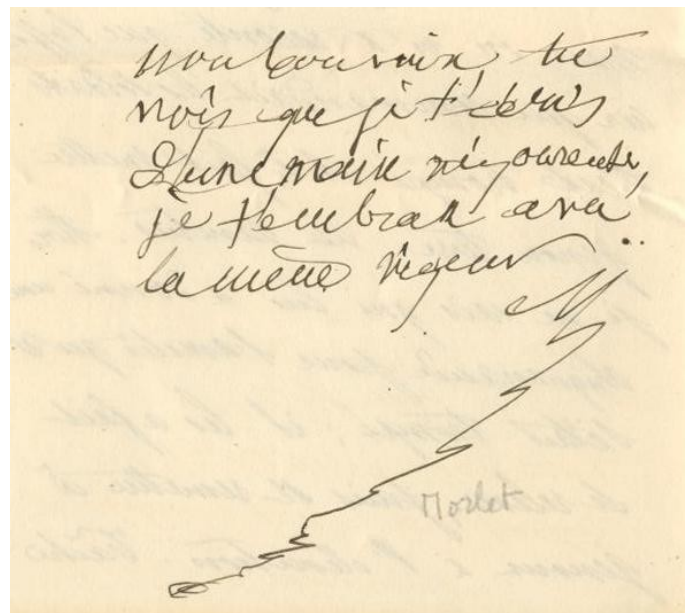 tu
vois que je t'écris
d'une main vigoureuse,
je t'embrasse avec
la même vigueur
M
Morlet